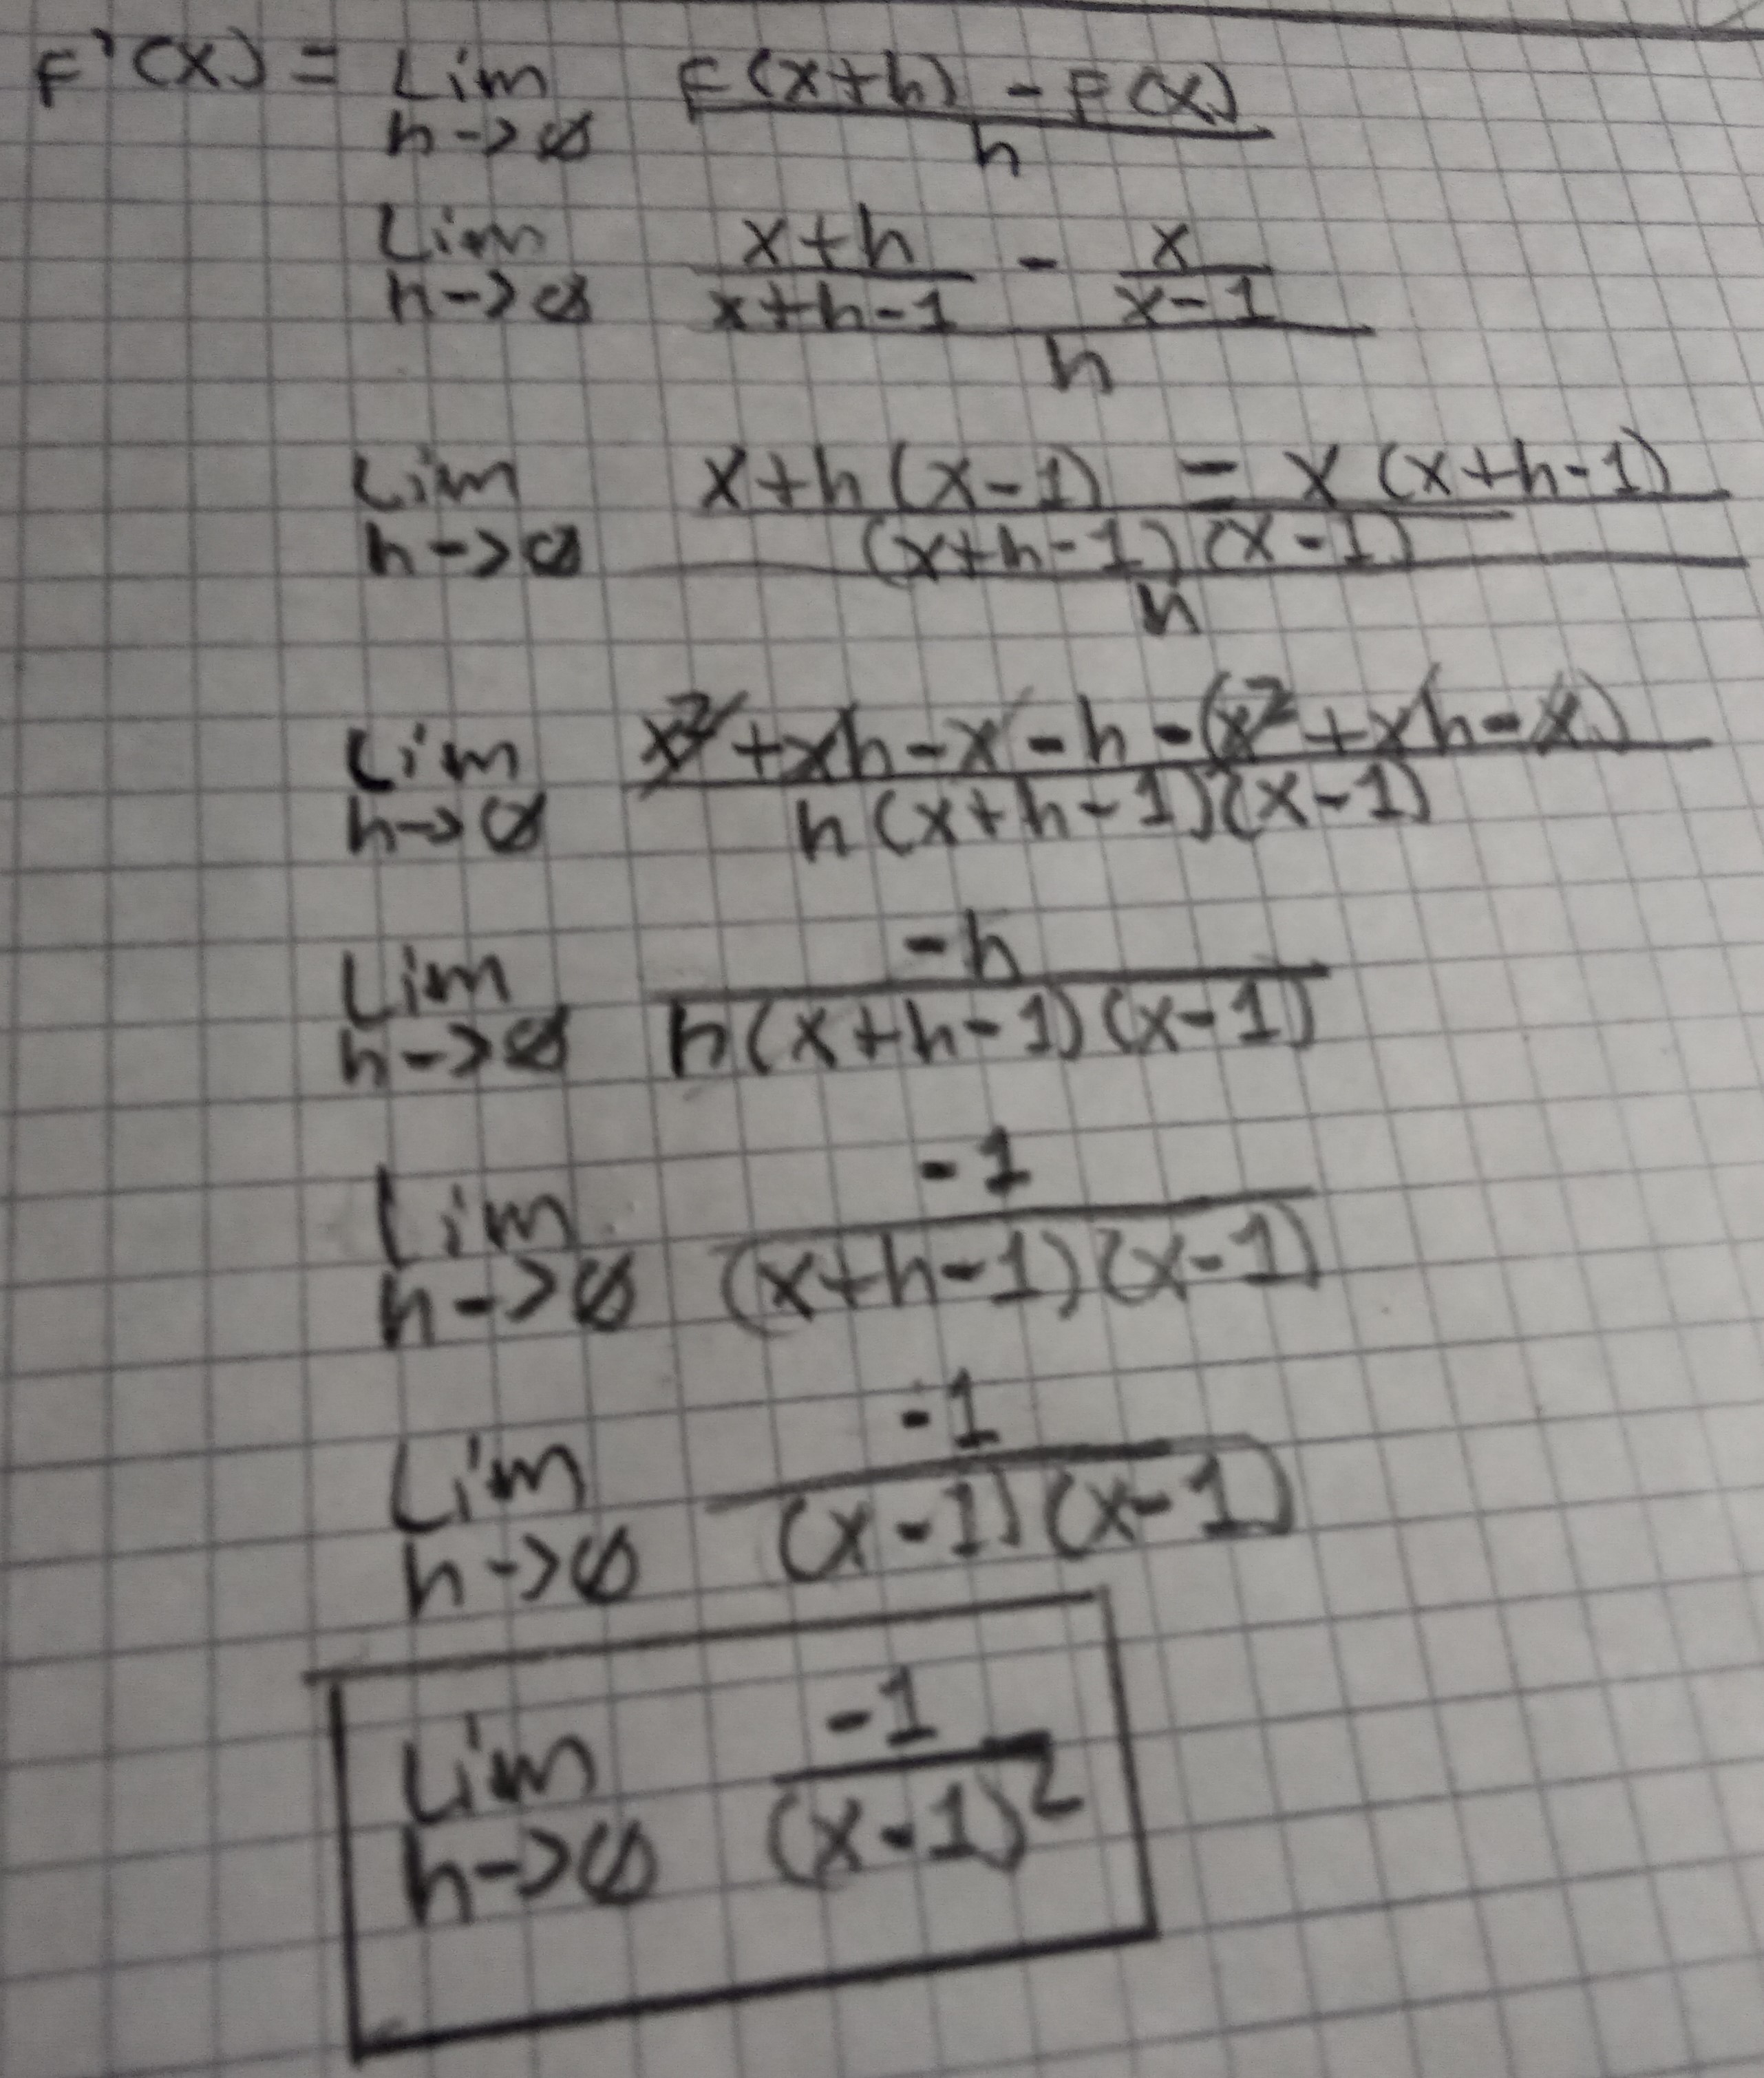 F'(x) = Lim F(x+h) - F(x)
h->0 h
Lim x+h - x
h->0 x+h-1 x-1
h
Lim x+h(x-1) - x(x+h-1)
h->0 (x+h-1)(x-1)
h
Lim x²+xh-x-h-(x²+xh-x)
h->0 h(x+h-1)(x-1)
Lim -h
h->0 h(x+h-1)(x-1)
Lim -1
h->0 (x+h-1)(x-1)
Lim -1
h->0 (x-1)(x-1)
Lim -1
h->0 (x-1)²